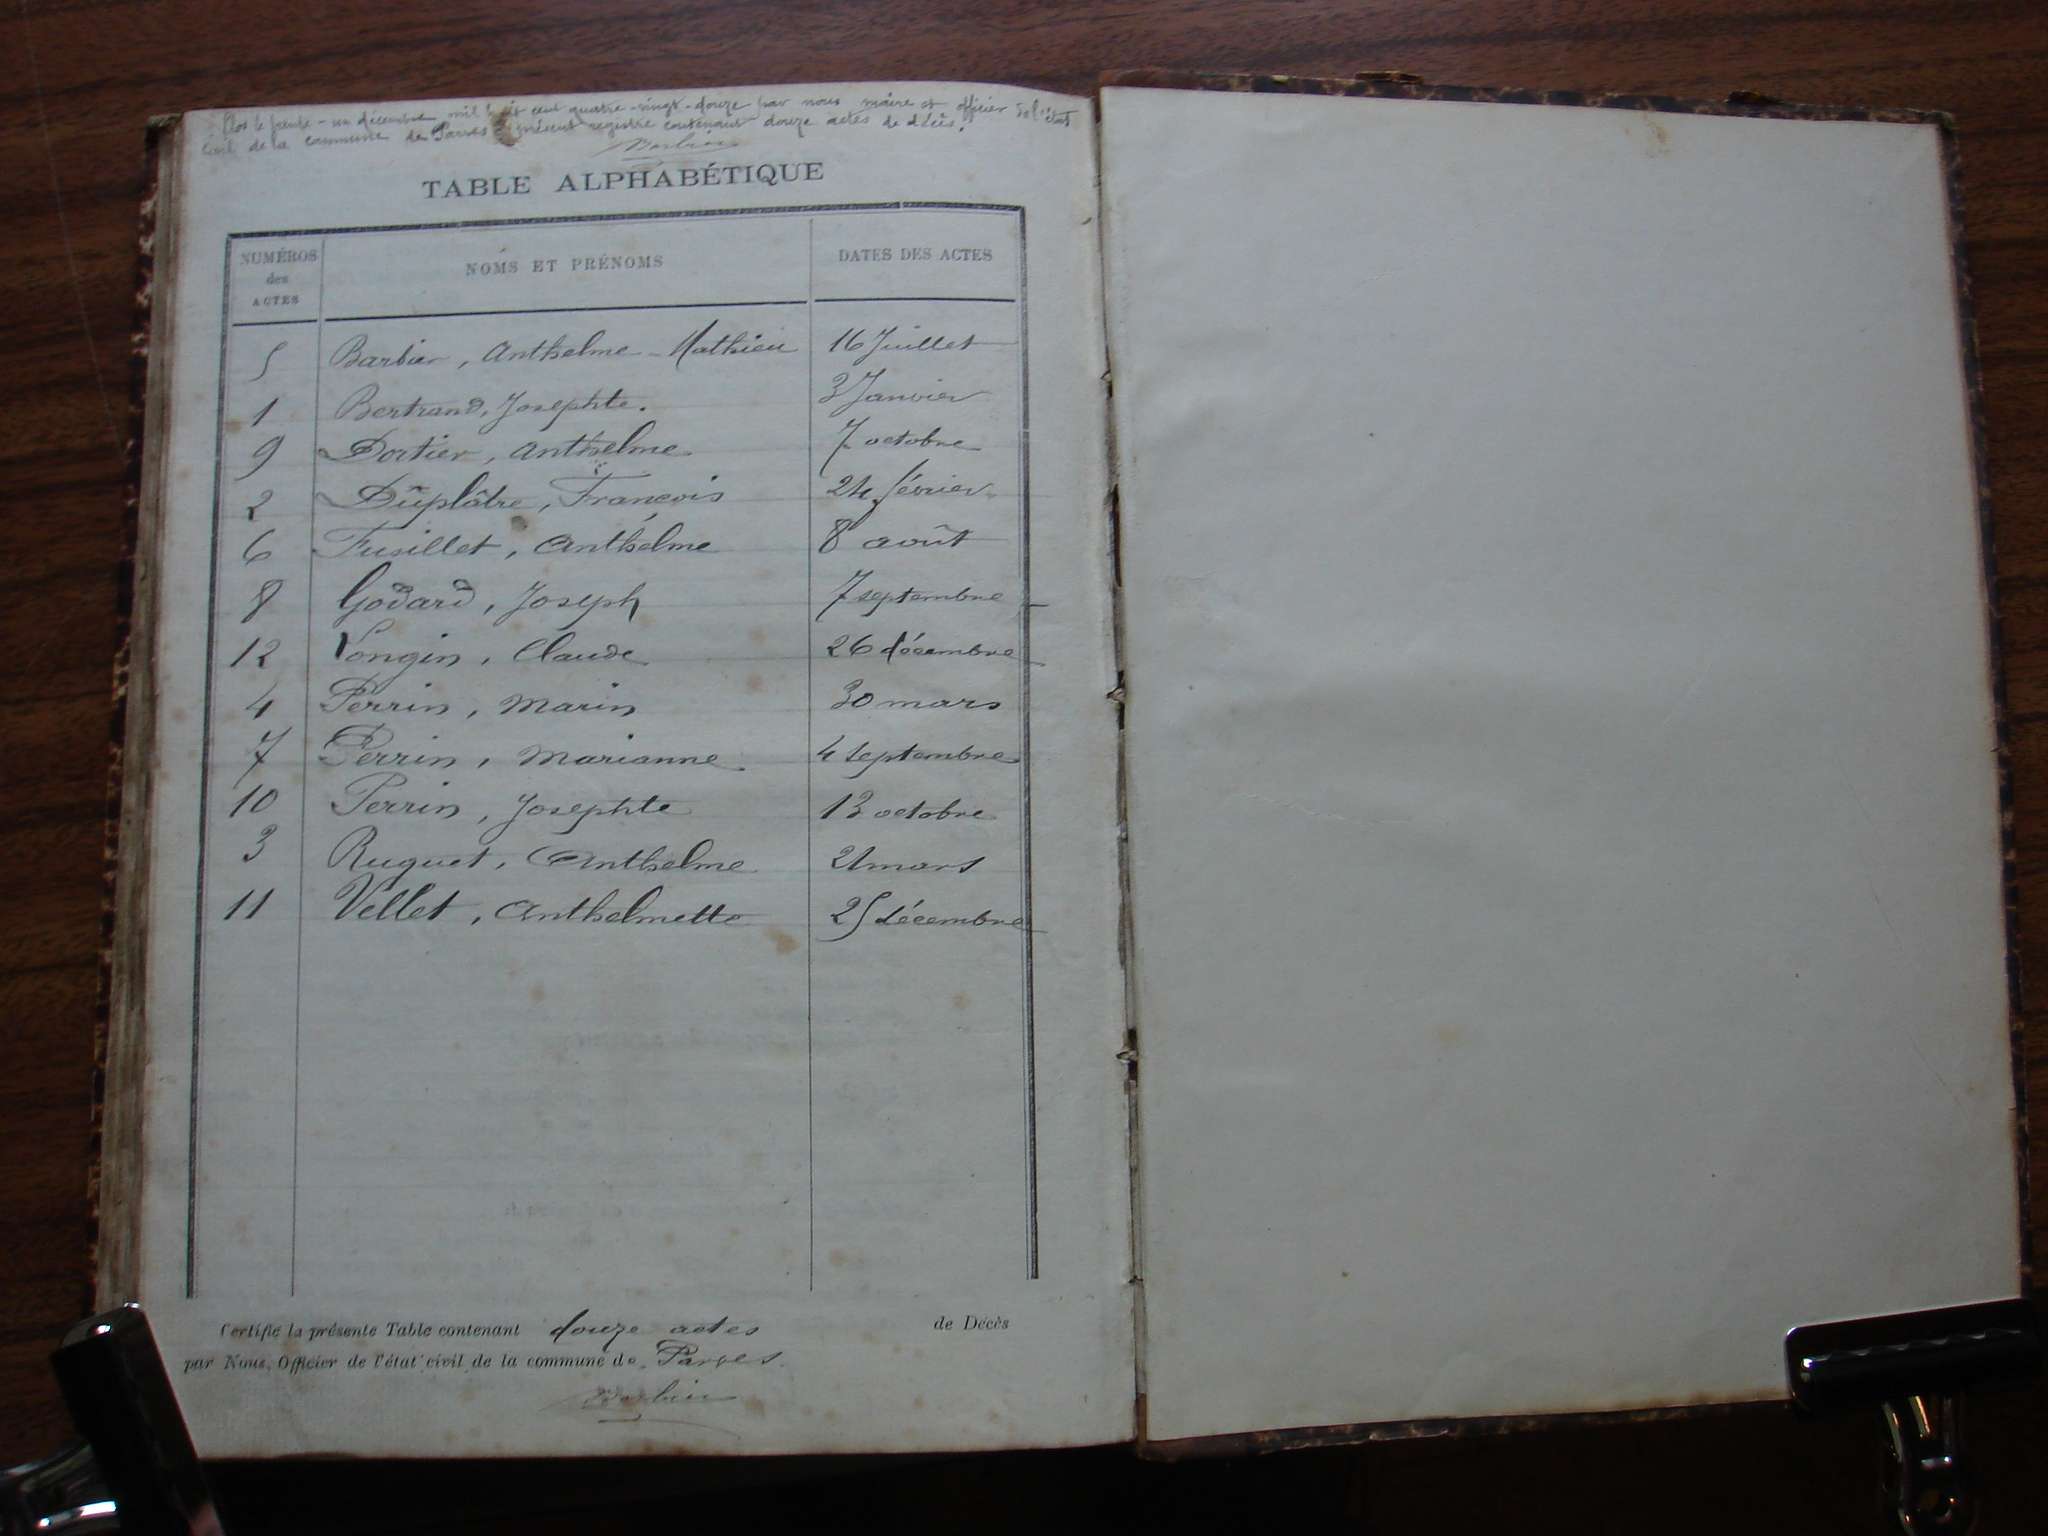 Clos le trente-un décembre mil huit cent quatre-vingt-douze par nous maire et officier de l'état
civil de la commune de Parves le présent registre contenant douze actes de décès.
TABLE ALPHABÉTIQUE
NUMÉROS des ACTES NOMS ET PRÉNOMS DATES DES ACTES
5 Barbier, Anthelme-Mathieu 16 Juillet
1 Bertrand, Josephte. 3 Janvier
9 Dortier, Anthelme 7 octobre
2 Dûplâtre, François 24 février
6 Fusillet, Anthelme 8 août
8 Godard, Joseph 7 septembre
12 Longin, Claude 26 décembre
4 Perrin, Marin 30 mars
7 Perrin, Marianne 4 septembre
10 Perrin, Josephte 13 octobre
3 Ruguet, Anthelme 21 mars
11 Vellet, Anthelmette 25 décembre
Certifié la présente Table contenant douze actes de Décès
par Nous, Officier de l'état civil de la commune de Parves.